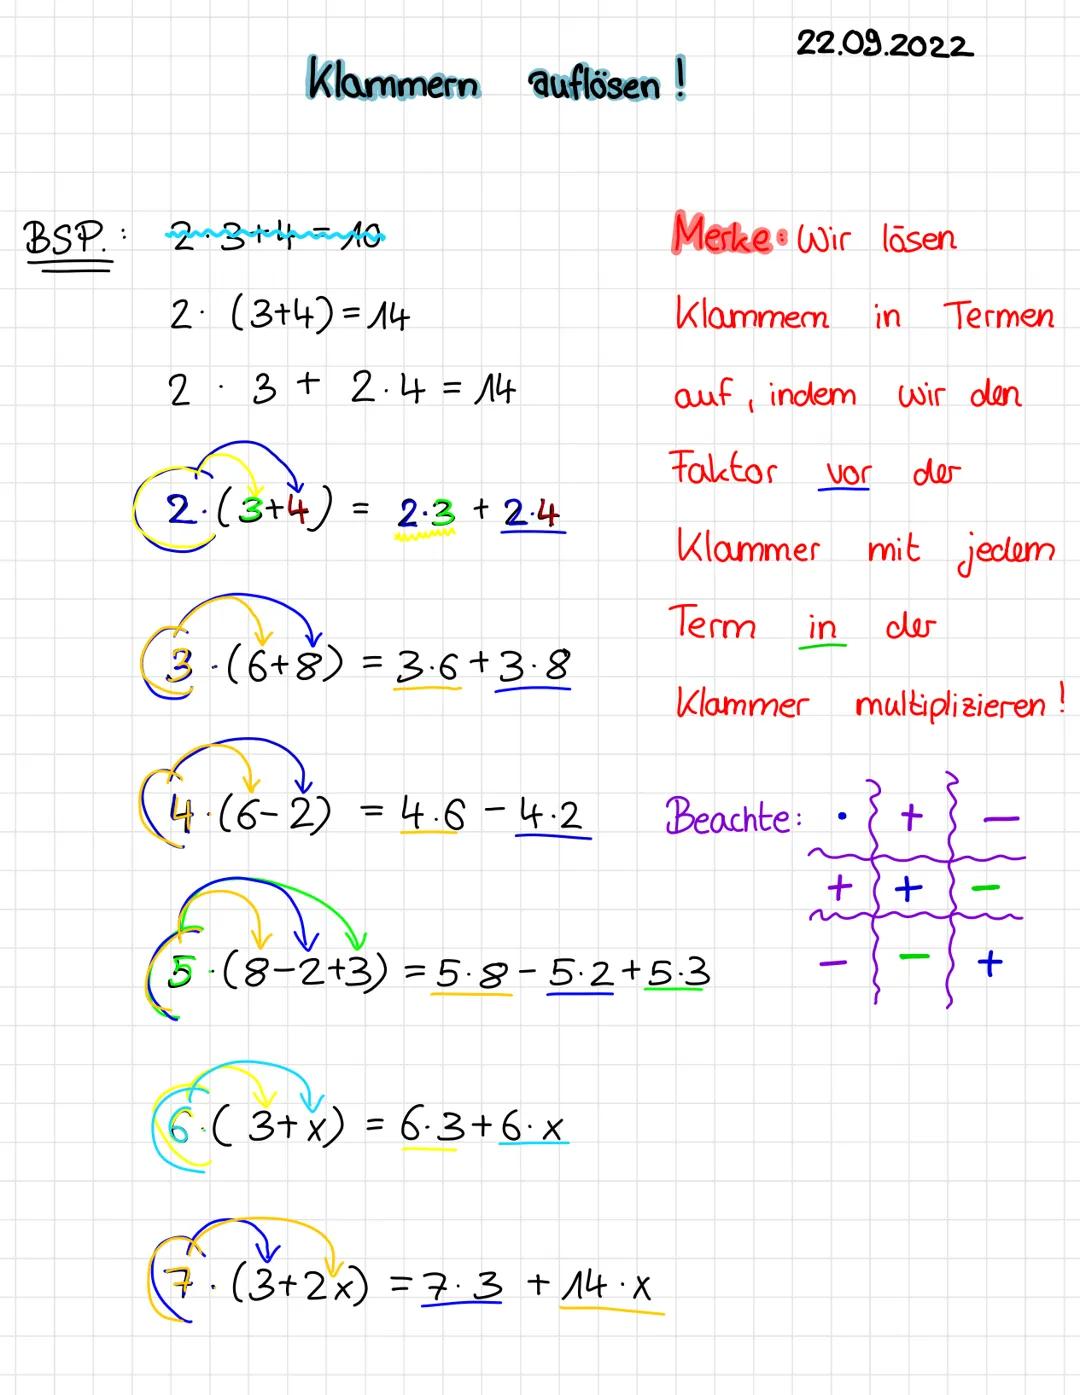 22.09.2022
Klammern auflösen!
BSP.: 2·3+4=10
2·(3+4)=14
2·3+2·4=14
2·(3+4) = 2·3 + 2·4
3·(6+8) = 3·6+3·8
4·(6-2) = 4·6 - 4·2
5·(8-2+3) = 5·8 - 5·2 + 5·3
6·(3+x) = 6·3+6·x
7·(3+2x) = 7·3 + 14·x
Merke: Wir lösen
Klammern in Termen
auf, indem wir den
Faktor vor der
Klammer mit jedem
Term in der
Klammer multiplizieren!
Beachte: · + -
+ + -
- - +